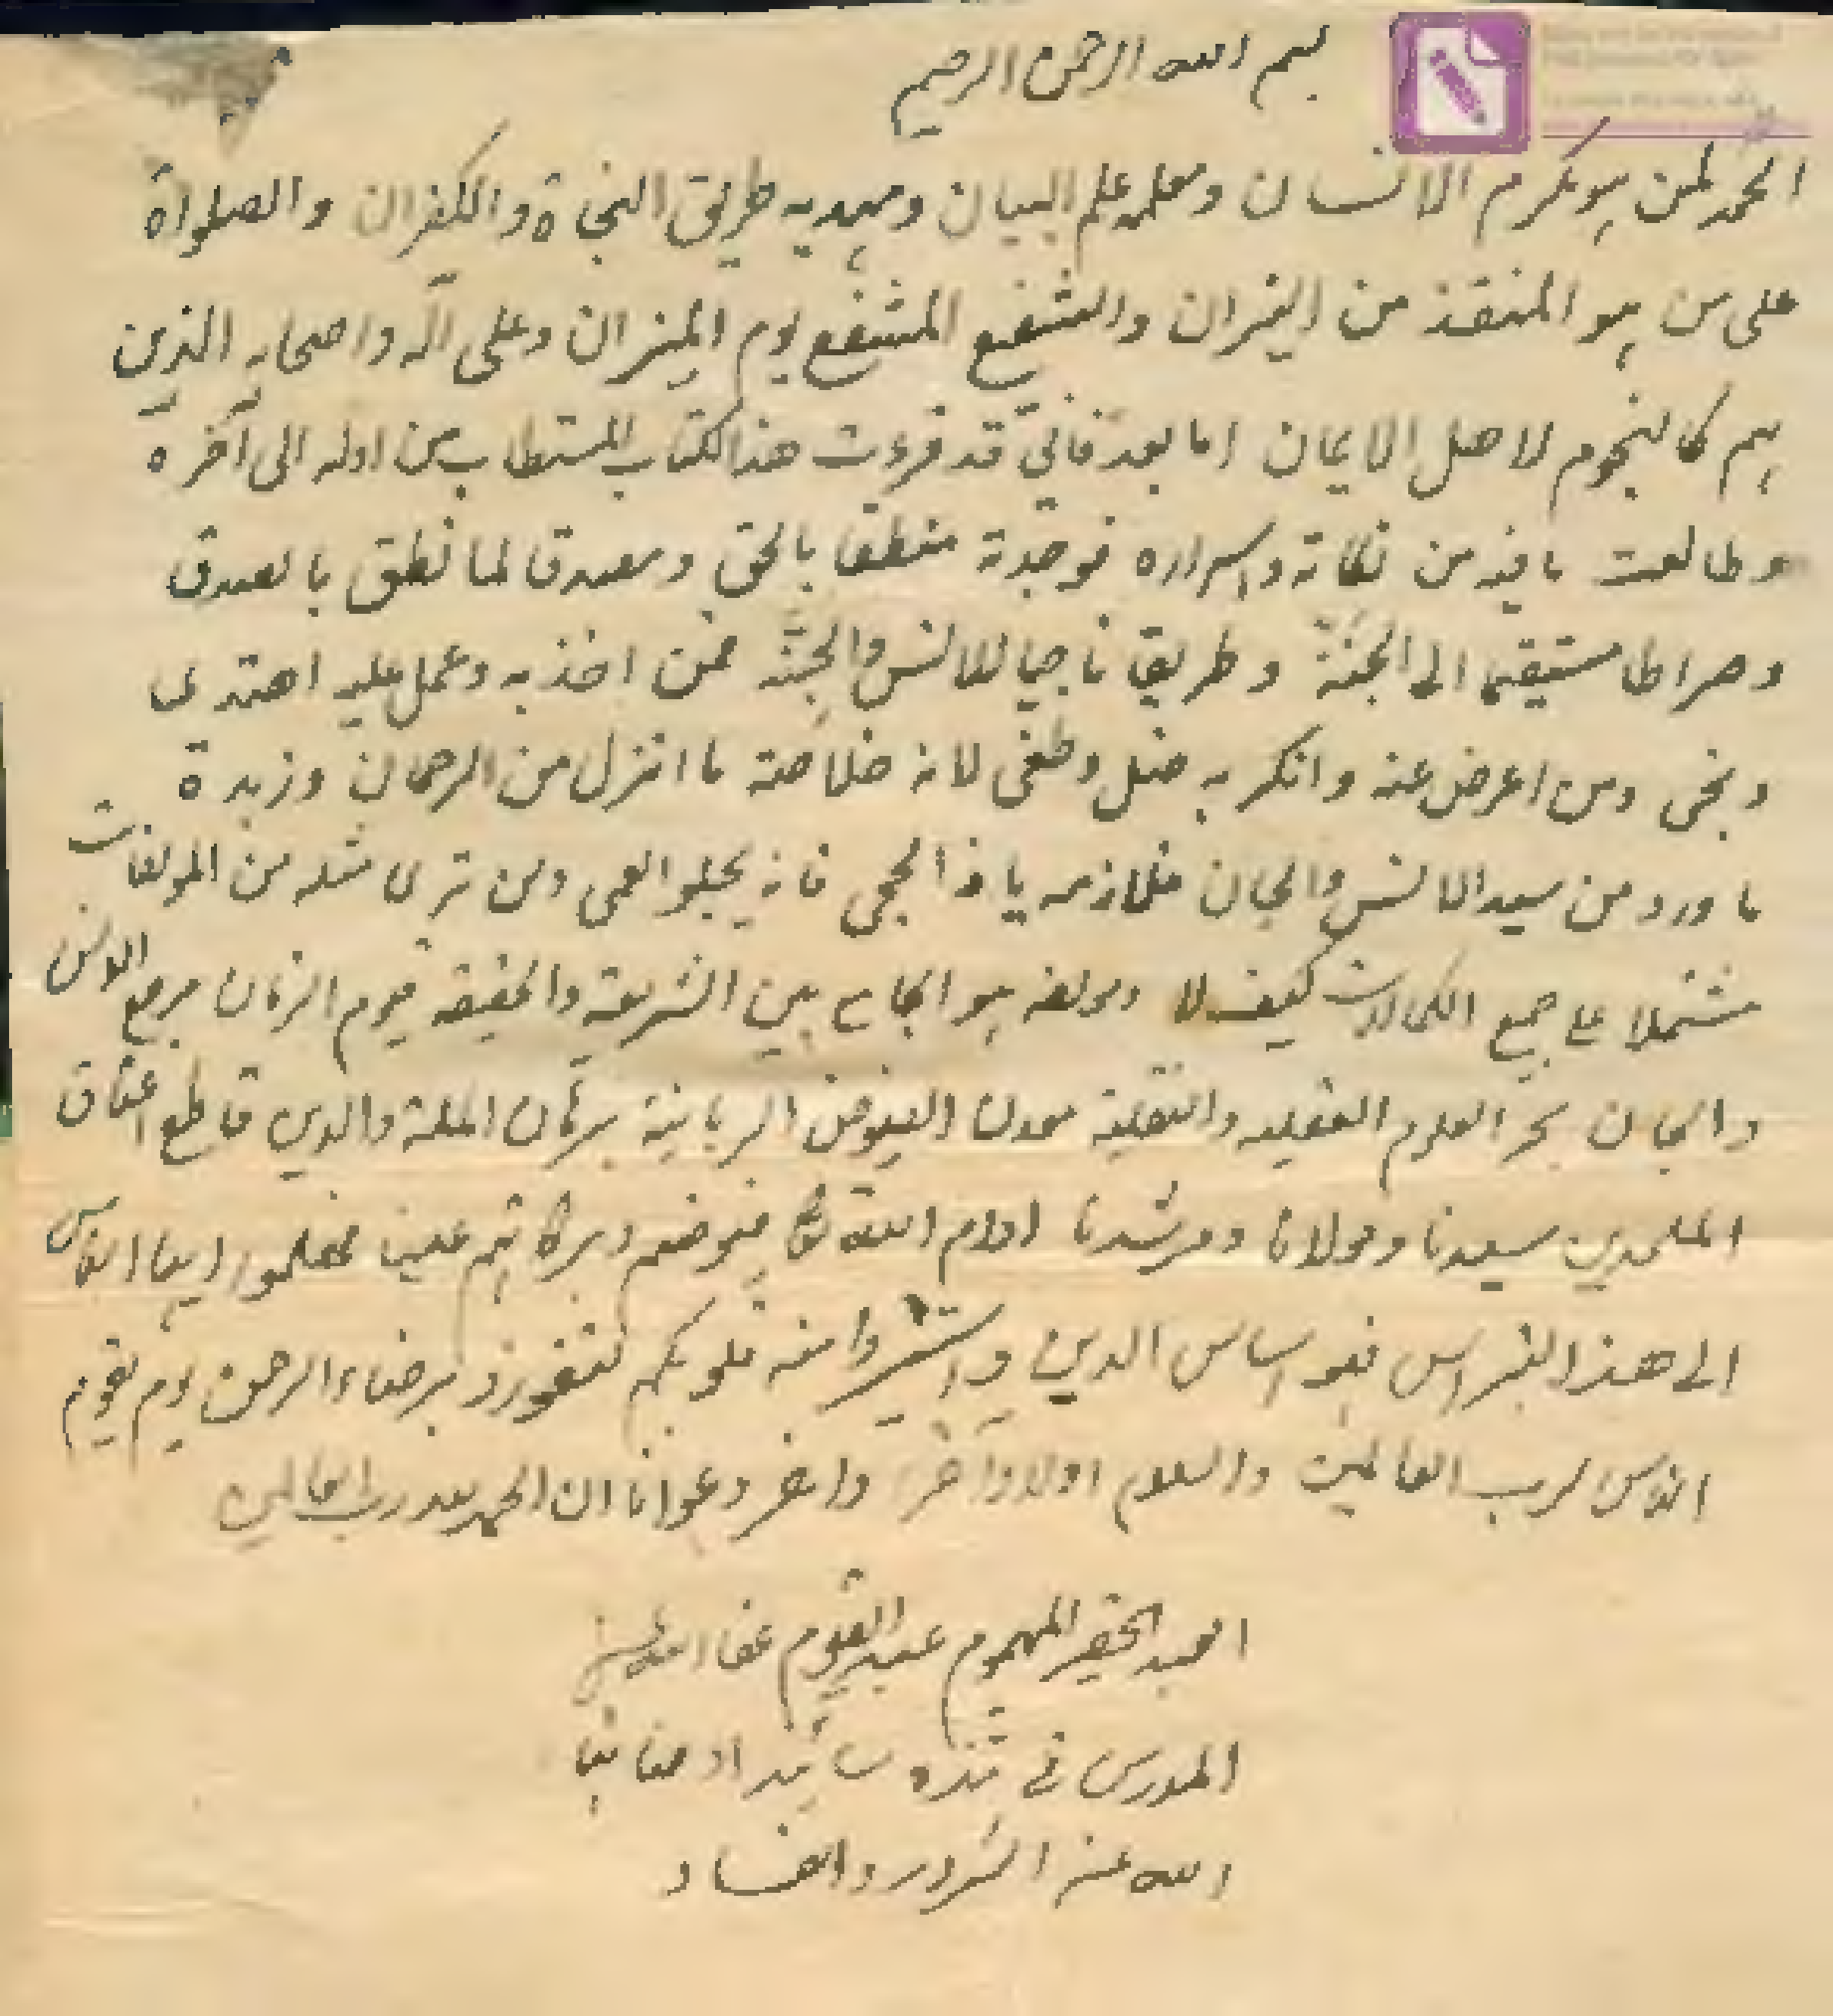 بسم الله الرحمن الرحيم
الحمد لمن هو مكرم الانسان ومعلمه علم البيان ومهديه طريق النجاة والكفران والصلواة
على من هو المنقذ من النيران والشفيع المشفع يوم الميزان وعلى آله واصحابه الذين
هم كالنجوم لاهل الايمان اما بعد فانى قد قرءت هذالكتاب المستطاب من اوله الى آخره
وطالعت مافيه من نكاته واسراره فوجدته منطقا بالحق ومصدقا لما نطق بالصدق
وصراطا مستقيما الى الجنة وطريقا ناجيا للانس والجنة فمن اخذ به وعمل عليه اهتدى
ونجى ومن اعرض عنه وانكر به ضل وطغى لانه خلاصة ما انزل من الرحمان وزبدة
ما ورد من سيد الانس والجان فلازمه ياذا لحجى فانه يجلوا العمى ولن ترى مثله من المولفات
مشتملا على جميع الكمالات كيف لا ومولفه هو الجامع بين الشريعة والحقيقه قيوم الزمان مرجع الانس
والجان بحر العلوم العقليه والنقلية معدن الفيوض الربانية برهان الملة والدين قاطع اعناق
الملحدين سيدنا ومولانا ومرشدنا ادام الله فيوضهم وبركاتهم علينا ايها الناس
الى هذا النبراس فهو اساس الدين منه قلوبكم لتفوزو برضاء الرحمن يوم يقوم
الناس لرب العالمين والسلام اولا واخرا واخر دعوانا ان الحمد لله رب العالمين
العبد الحقير المهموم عبد القيوم عفا الله عنه
المدرس فى تنذه سائينداد صانها
الله عن الشرور والفساد